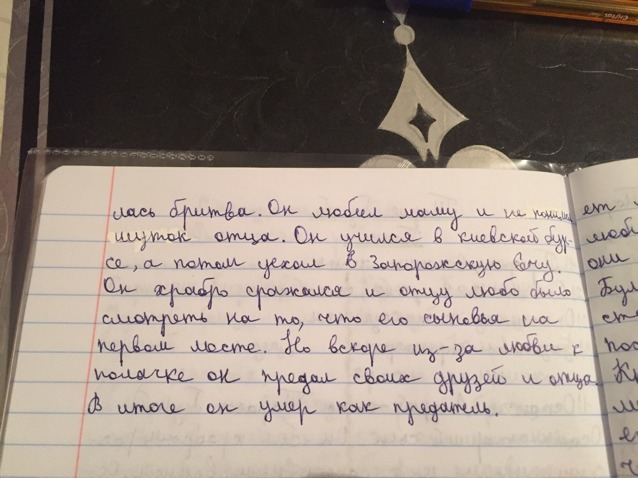 лась бритва. Он любил маму и не понимал
шуток отца. Он учился в киевской бур-
се, а потом уехал в Запорожскую Сечу.
Он храбро сражался и отцу любо было
смотреть на то, что его сыновья на
первом месте. Но вскоре из-за любви к
полячке он предал своих друзей и отца.
В итоге он умер как предатель.
ет
люби
они
Бул
сте
пос